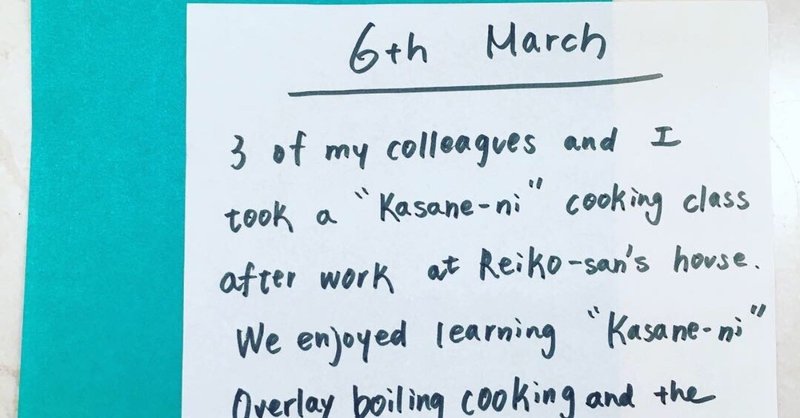 6th March
3 of my colleagues and I
took a "Kasane-ni" cooking class
after work at Reiko-san's house.
We enjoyed learning "Kasane-ni"
Overlay boiling cooking and the